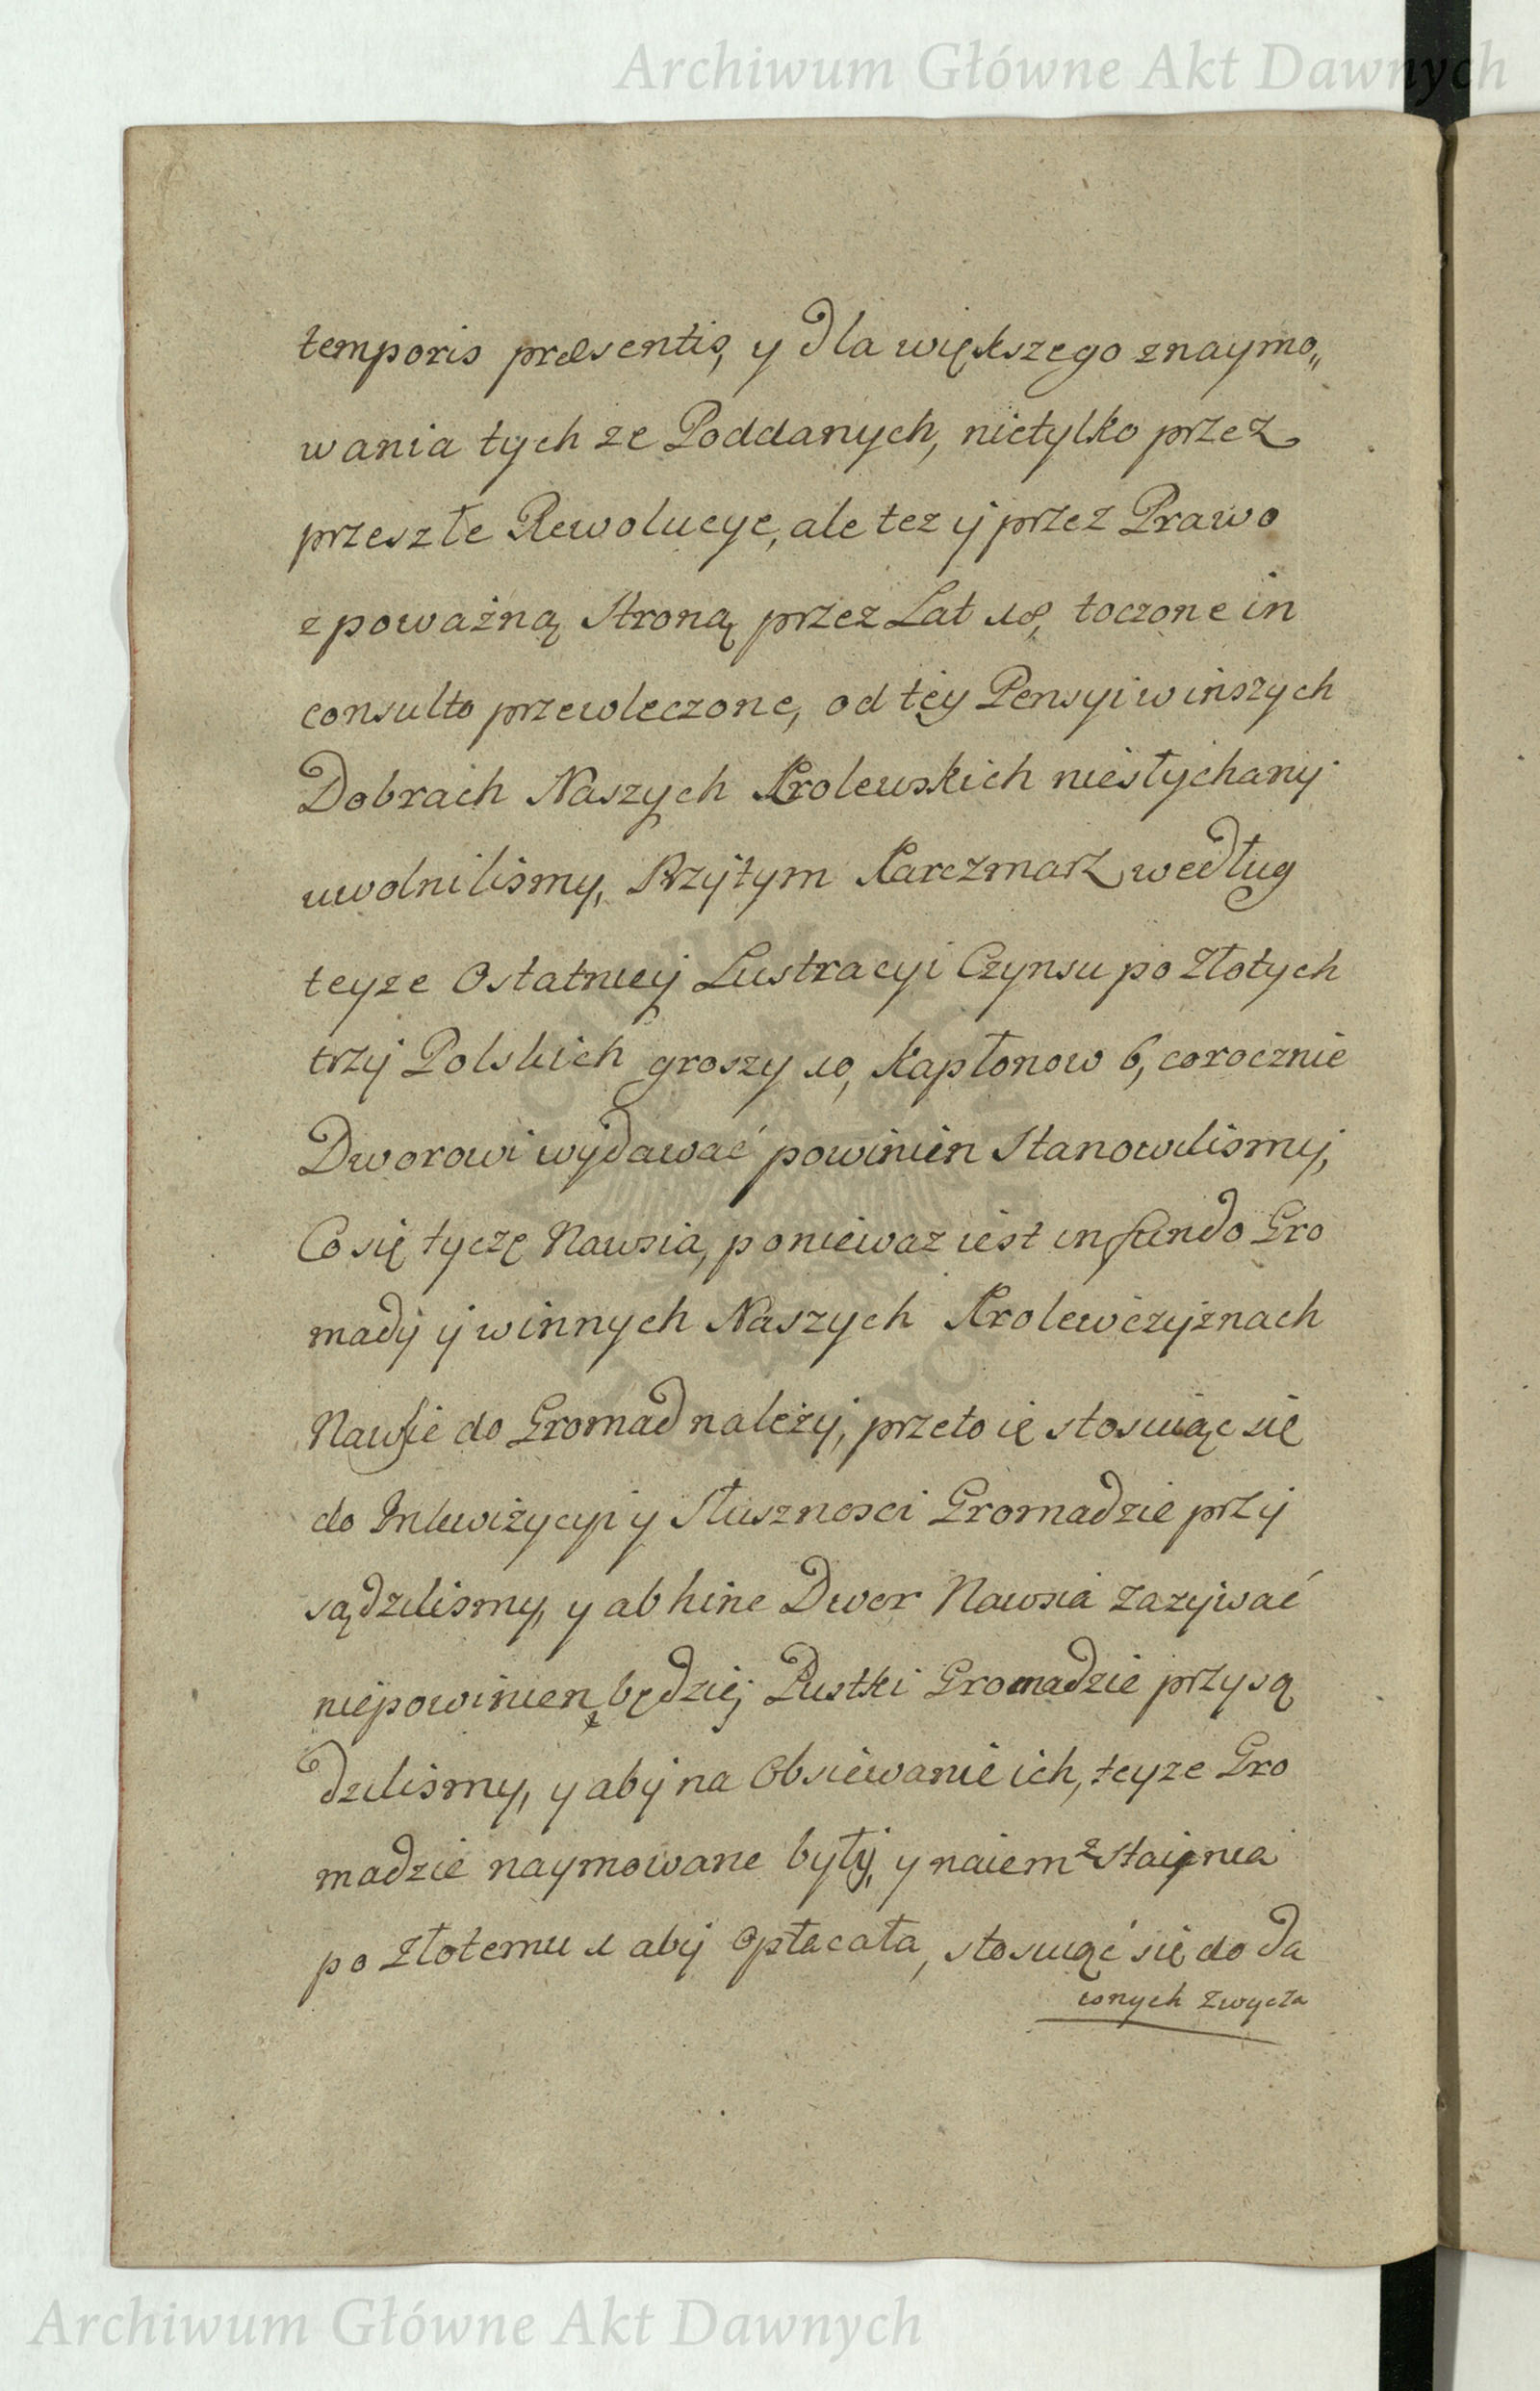 Archiwum Główne Akt Dawnych
temporis præsentis, y dla większego znaymo„
wania tych ze Poddanych, nietylko przez
przeszłe Rewolucye, ale tez y przez Prawo
z poważną Stroną przez Lat 18, toczone in
consulto przewleczone, od tey Pensyi w inszych
Dobrach Naszych Krolewskich niesłychany
uwolnilismy, Przytym Karczmarz według
teyze Ostatniey Lustracyi Czynsu po Złotych
trzy Polskich groszy 10, Kapłonow 6, corocznie
Dworowi wydawać powinien Stanowilismy,
Co się tyczę Nawsia, poniewaz iest in fundo Gro
mady y w innych Naszych Krolewczyznach
Nawsie do Gromad należy, przeto ię stosuiąc się
do Inkwizycyi y Słusznosci Gromadzie przy
sądzilismy, y ab hinc Dwor Nawsia Zazywać
niepowinien będzie, Pustki Gromadzie przysą
dzilismy, y aby na Obsiewanie ich, teyze Gro
madzie naymowane były, y naiem z Staiania
po Złotemu 1 aby Opłacała, stosuiąć się do Da
wnych Zwycza
Archiwum Główne Akt Dawnych